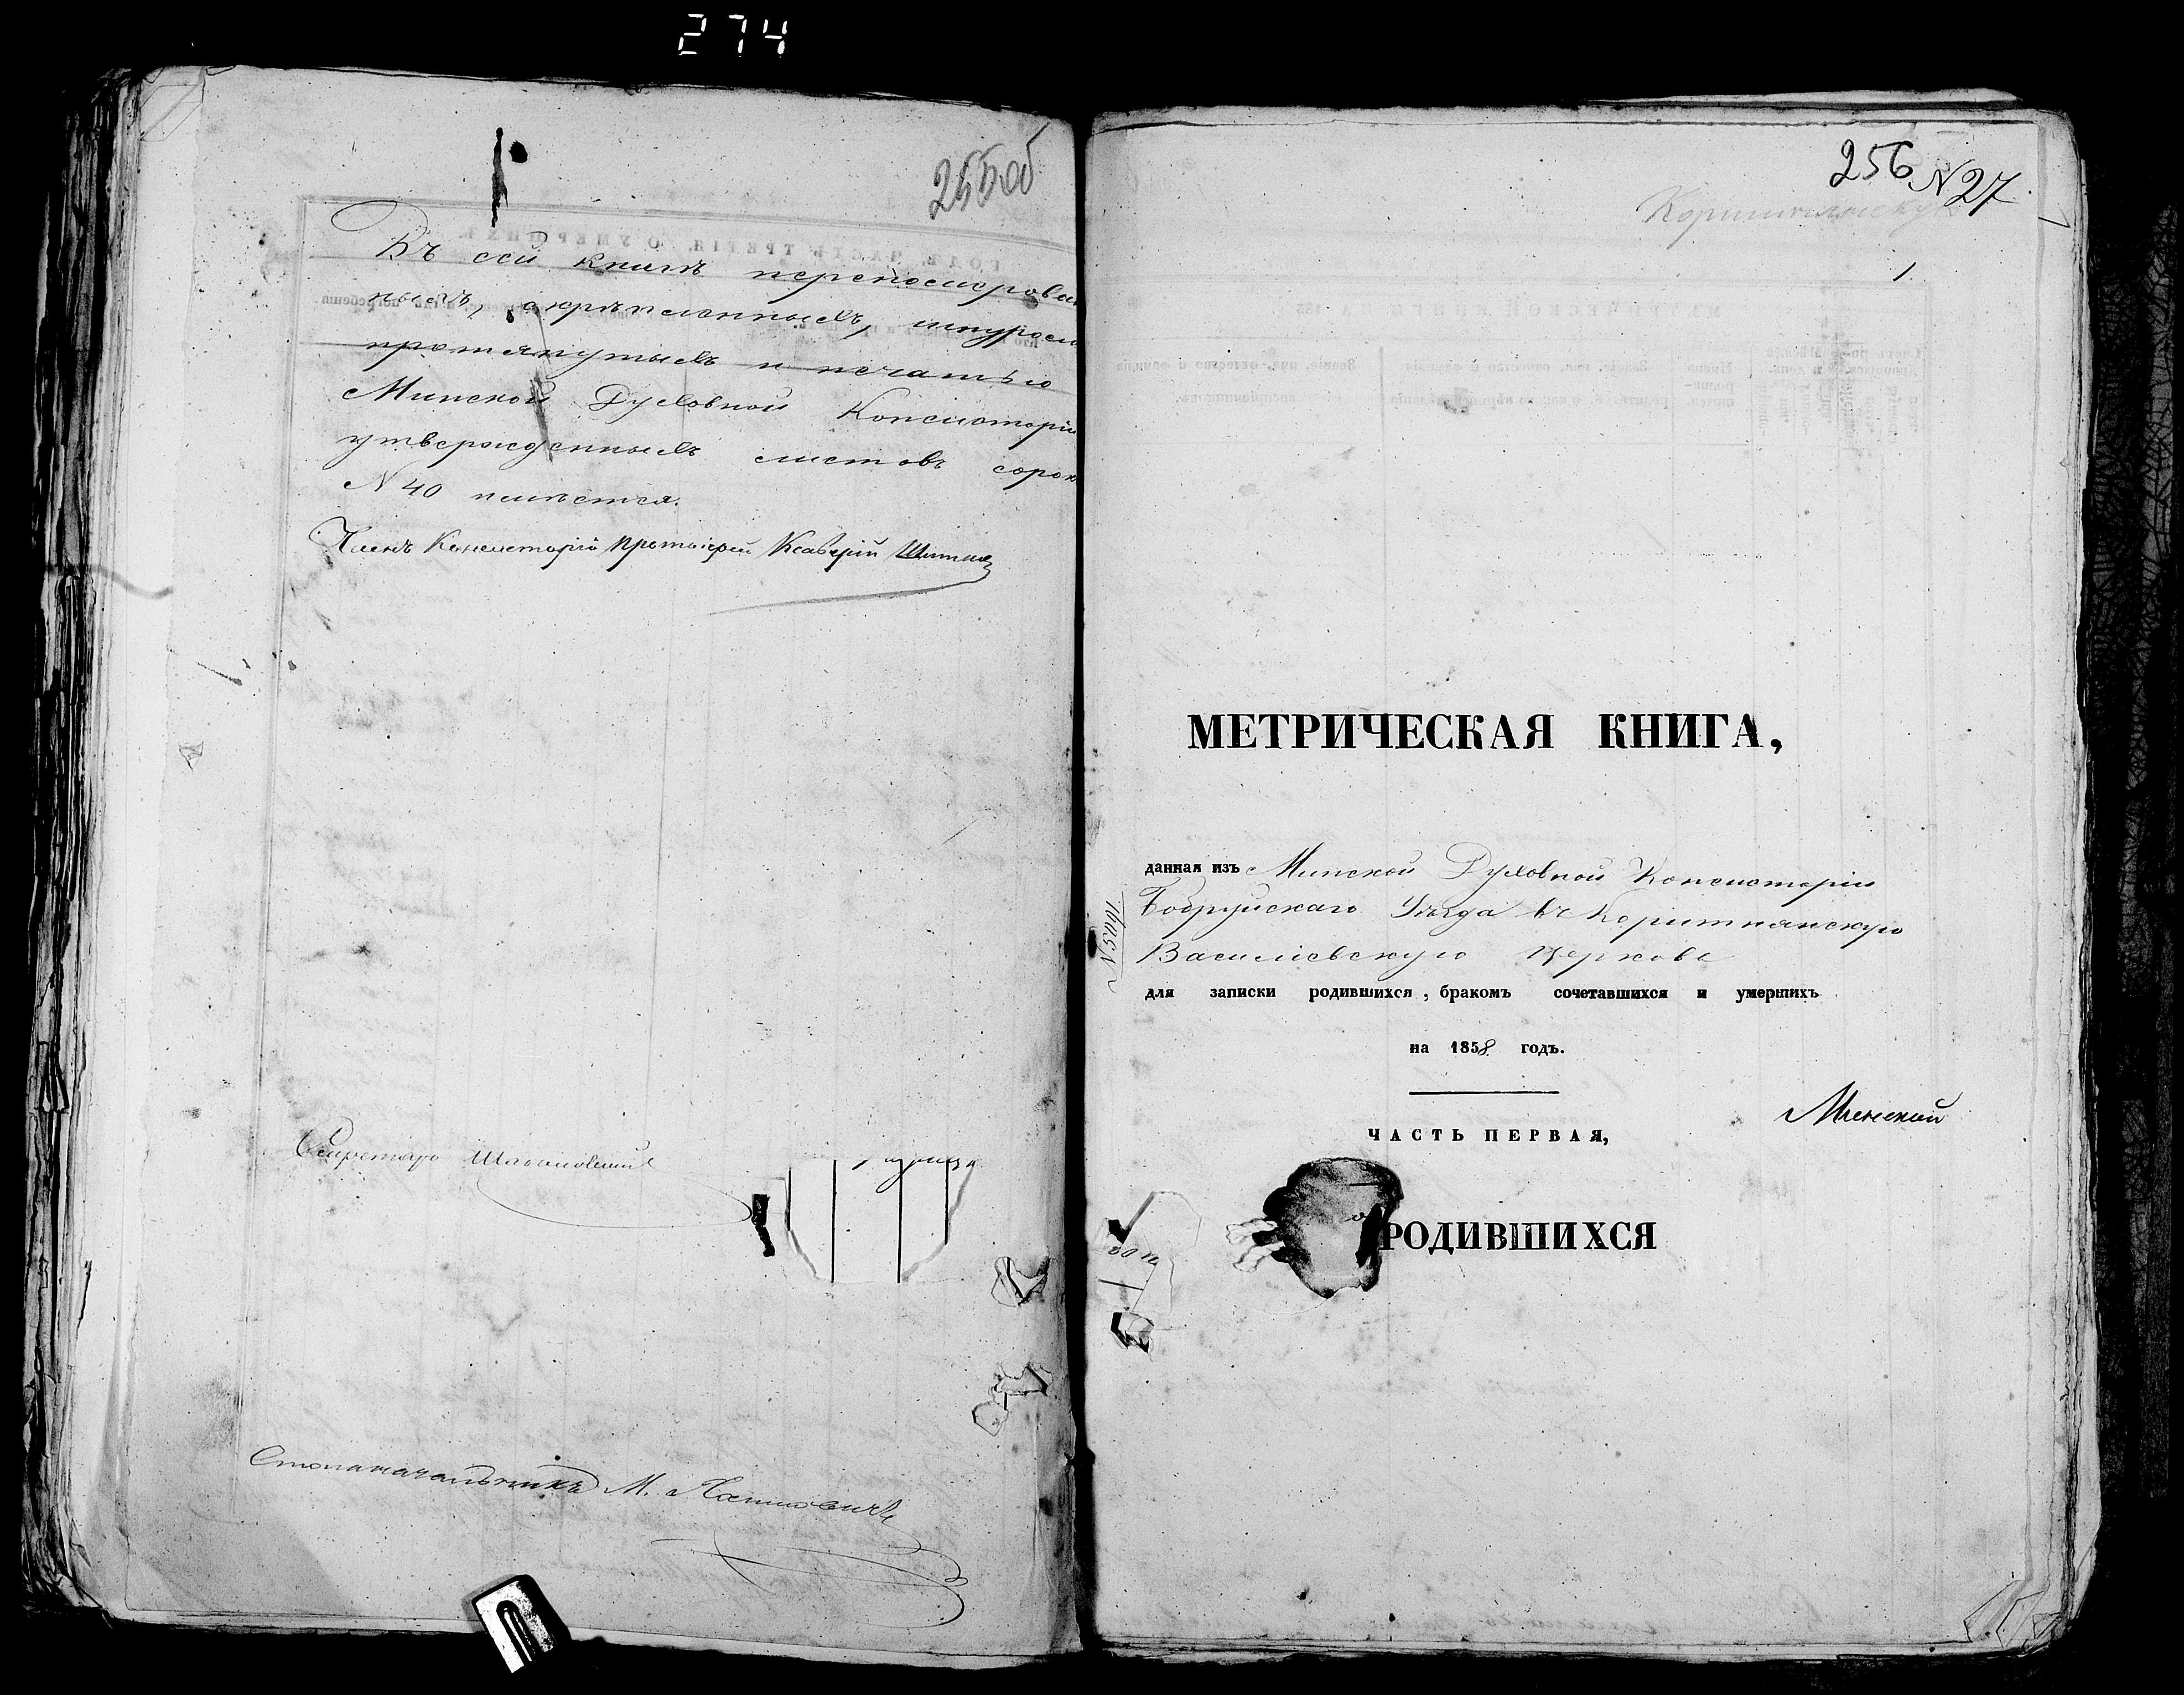 274
255 об
Въ сей книгѣ перенумерован
ныхъ, скрѣпленныхъ, шнуром
протянутыхъ и печатью
Минской Духовной Консисторіи
утвержденныхъ листовъ сорок
N 40 имѣется.
Членъ Консисторіи Протоіерей Ксаверій
Секретарь
Столоначальникъ М.
256 N 27
1.
МЕТРИЧЕСКАЯ КНИГА,
данная изъ Минской Духовной Консисторіи
Бобруйскаго Уѣзда въ Коритнянскую
Василіевскую церковь
для записки родившихся, бракомъ сочетавшихся и умершихъ
на 1858 годъ.
Минской
ЧАСТЬ ПЕРВАЯ,
РОДИВШИХСЯ